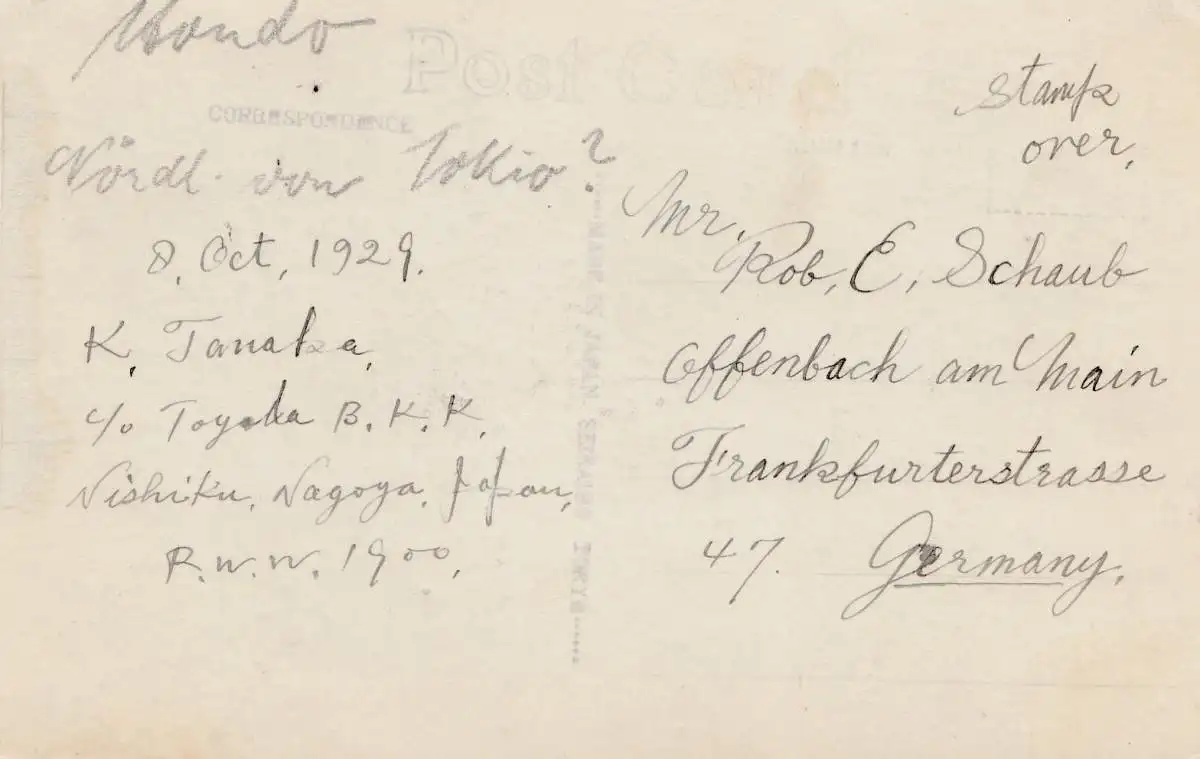 Hondo
Post Card
CORRESPONDENCE
Nördl. von Tokio?
8. Oct, 1929.
K. Tanaka,
c/o Toyoda B. K. K.
Nishiku, Nagoya, Japan,
R.W.W. 1900,
MADE BY JAPAN
stamp
over,
Mr.
Rob, E, Schaub
Offenbach am Main
Frankfurterstrasse
47. Germany.